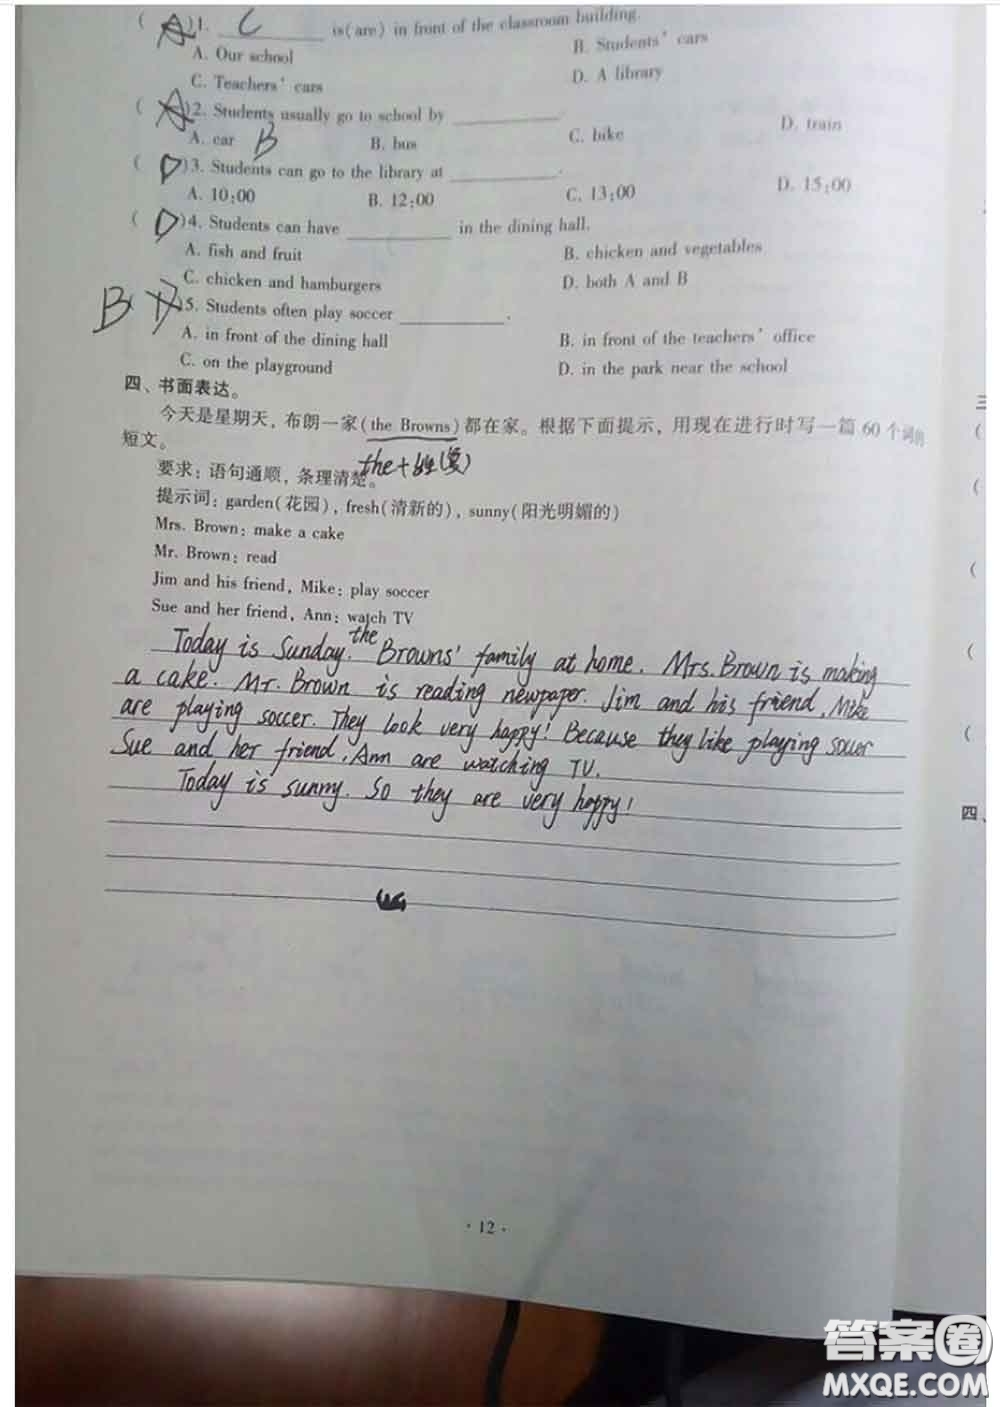 ( A )1. C is(are) in front of the classroom building.
A. Our school B. Students' cars
C. Teachers' cars D. A library
( A )2. Students usually go to school by ______.
A. car B B. bus C. bike D. train
( D )3. Students can go to the library at ______.
A. 10:00 B. 12:00 C. 13:00 D. 15:00
( D )4. Students can have ______ in the dining hall.
A. fish and fruit B. chicken and vegetables
C. chicken and hamburgers D. both A and B
B ( )5. Students often play soccer ______.
A. in front of the dining hall B. in front of the teachers' office
C. on the playground D. in the park near the school
四、书面表达。
今天是星期天，布朗一家(the Browns)都在家。根据下面提示，用现在进行时写一篇 60 个词的
短文。
要求：语句通顺，条理清楚。
the+姓(复)
提示词：garden(花园)，fresh(清新的)，sunny(阳光明媚的)
Mrs. Brown: make a cake
Mr. Brown: read
Jim and his friend, Mike: play soccer
Sue and her friend, Ann: watch TV
Today is Sunday. the Browns' family at home. Mrs. Brown is making
a cake. Mr. Brown is reading newpaper. Jim and his friend, Mike
are playing soccer. They look very happy! Because they like playing souer
Sue and her friend, Ann are watching TV.
Today is sunny. So they are very happy!
· 12 ·
三
(
(
(
(
(
四、
答案圈
MXQE.COM